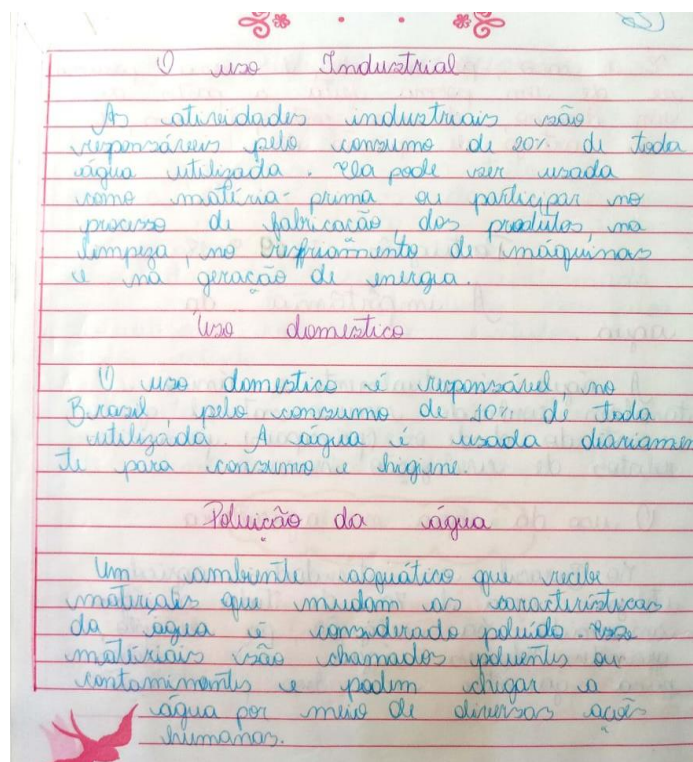 O uso Industrial
As atividades industriais são
responsáveis pelo consumo de 20% de toda
água utilizada. Ela pode ser usada
como matéria-prima ou participar no
processo de fabricação dos produtos, na
limpeza, no resfriamento de máquinas
e na geração de energia.
Uso domestico
O uso domestico é responsável, no
Brasil pelo consumo de 10% de toda
utilizada. A água é usada diariamen
te para consumo e higiene.
Poluição da água
Um ambiente aquático que recebe
materiais que mudam as características
da água é considerado poluído. Esse
materiais são chamados poluentes ou
contaminantes e podem chegar a
água por meio de diversas ações
humanas.